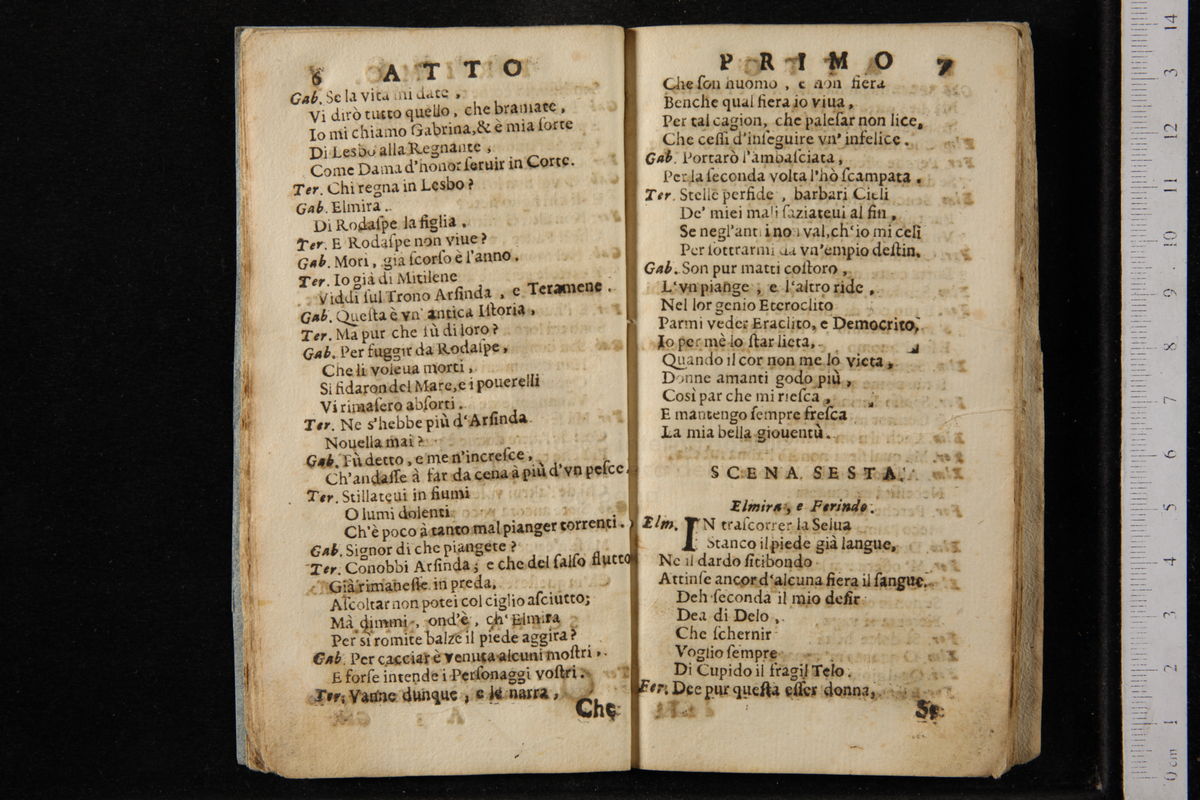 6 ATTO
Gab. Se la vita mi date,
Vi dirò tutto quello, che bramate,
Io mi chiamo Gabrina, & è mia ſorte
Di Lesbo alla Regnante,
Come Dama d'honor ſeruir in Corte.
Ter. Chi regna in Lesbo?
Gab. Elmira.
Di Rodaſpe la figlia.
Ter. E Rodaſpe non viue?
Gab. Morì, già ſcorſo è l'anno.
Ter. Io già di Mitilene
Viddi ſul Trono Arſinda, e Teramene.
Gab. Queſta è vn' antica Iſtoria,
Ter. Ma pur che fù di loro?
Gab. Per fuggir da Rodaſpe,
Che li voleua morti,
Si fidaron del Mare, e i pouerelli
Vi rimaſero abſorti.
Ter. Ne s'hebbe più d'Arſinda
Nouella mai?
Gab. Fù detto, e me n'increſce,
Ch'andaſſe à far da cena à più d'vn peſce.
Ter. Stillateui in fiumi
O lumi dolenti
Ch'è poco à tanto mal pianger torrenti.
Gab. Signor di che piangete?
Ter. Conobbi Arſinda; e che del ſalſo flutto
Già rimaneſſe in preda,
Aſcoltar non potei col ciglio aſciutto;
Mà dimmi, ond'è, ch'Elmira
Per sì romite balze il piede aggira?
Gab. Per cacciar è venuta alcuni moſtri,
E forſe intende i Perſonaggi voſtri.
Ter. Vanne dunque, e le narra,
Che
PRIMO 7
Che ſon huomo, e non fiera
Benche qual fiera io viua,
Per tal cagion, che paleſar non lice,
Che ceſſi d'inſeguire vn' infelice.
Gab. Portarò l'ambaſciata,
Per la ſeconda volta l'hò ſcampata.
Ter. Stelle perfide, barbari Cieli
De' miei mali ſaziateui al fin,
Se negl'antri non val, ch'io mi celi
Per ſottrarmi da vn'empio deſtin.
Gab. Son pur matti coſtoro,
L'vn piange, e l'altro ride,
Nel lor genio Eteroclito
Parmi veder Eraclito, e Democrito,
Io per mè lo ſtar lieta,
Quando il cor non me lo vieta,
Donne amanti godo più,
Così par che mi rieſca,
E mantengo ſempre freſca
La mia bella giouentù.
SCENA SESTA.
Elmira, e Ferindo.
Elm. IN traſcorrer la Selua
Stanco il piede già langue,
Ne il dardo ſitibondo
Attinſe ancor d'alcuna fiera il ſangue.
Deh ſeconda il mio deſir
Dea di Delo,
Che ſchernir
Voglio ſempre
Di Cupido il fragil Telo.
Fer. Dee pur queſta eſſer donna,
Se